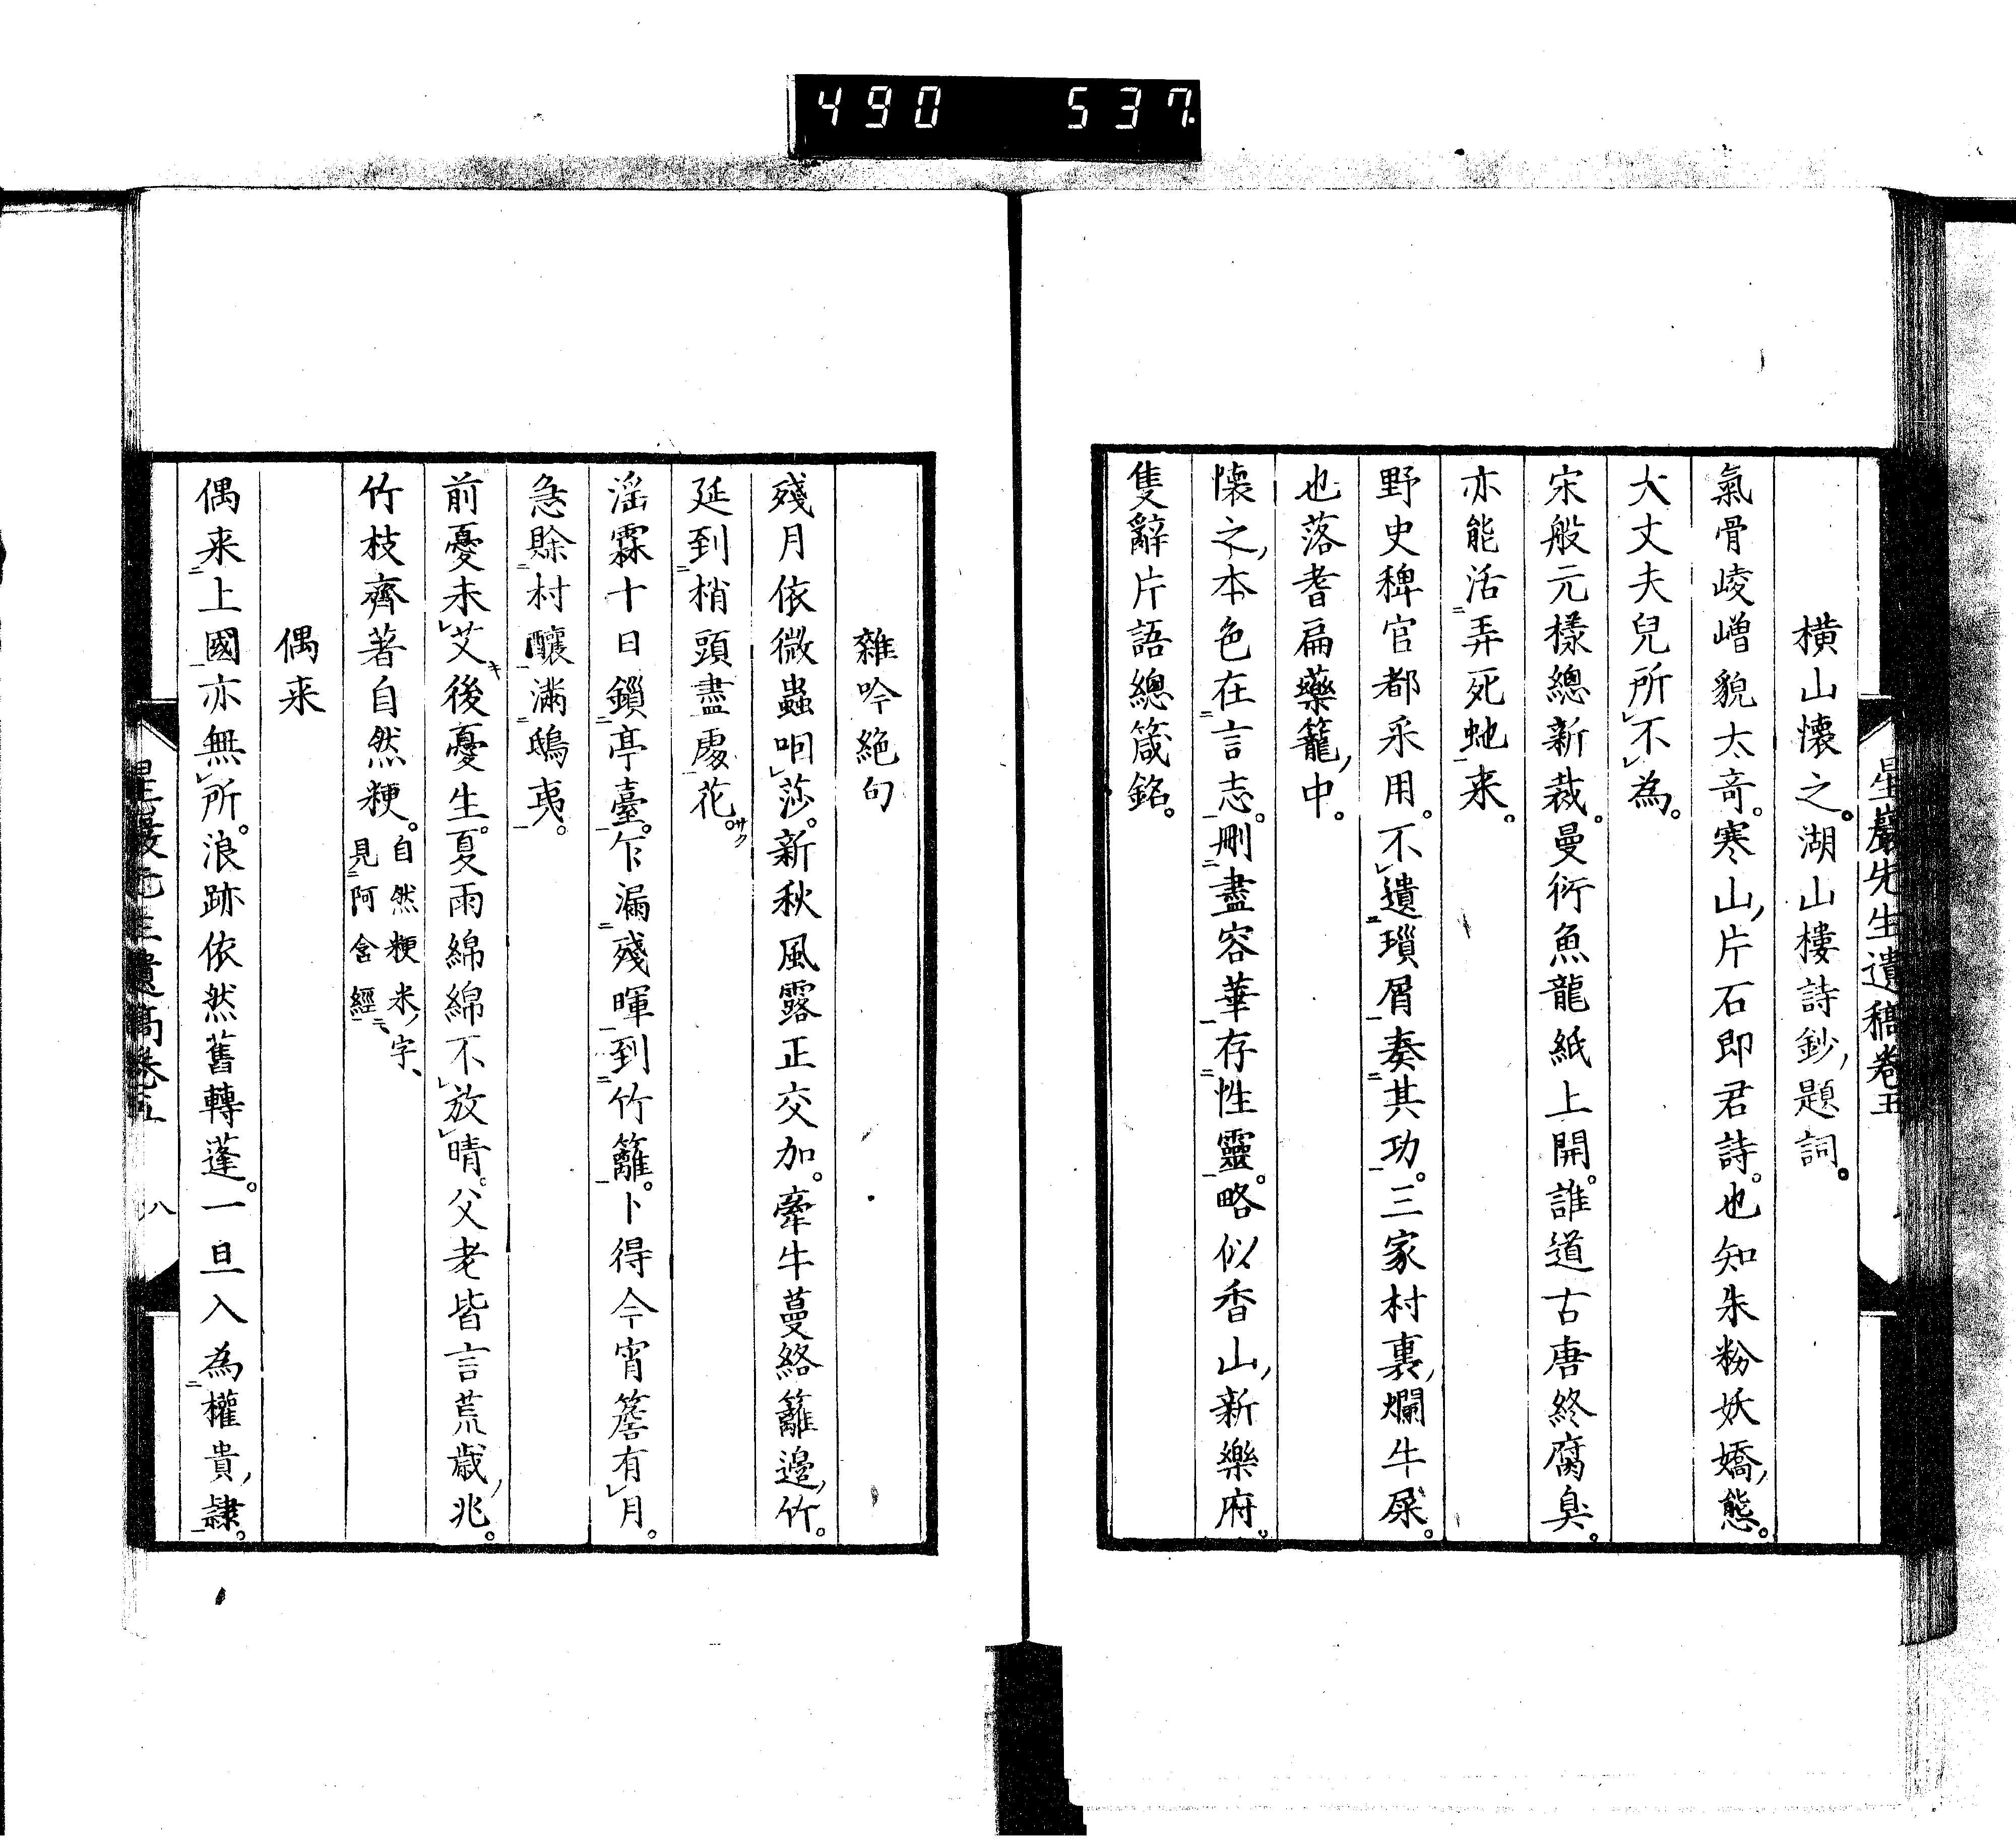 490 537
星巖先生遺稿卷五
橫山懷之。湖山樓詩鈔題詞。
氣骨崚嶒貌太奇。寒山片石即君詩。也知朱粉妖嬌態。
大丈夫兒所不為。
宋般元樣總新裁。曼衍魚龍紙上開。誰道古唐終腐臭。
亦能活弄死虵来。
野史稗官都采用。不遺瑣屑奏其功。三家村裏爛牛屎。
也落耆扁藥籠中。
懷之本色在言志。刪盡容華存性靈。略似香山新樂府。
隻辭片語總箴銘。
雜吟絕句
殘月依微蟲咽莎。新秋風露正交加。牽牛蔓絡籬邊竹。
延到梢頭盡處花。サク
淫霖十日鎖亭臺。乍漏殘暉到竹籬。卜得今宵簷有月。
急賒村釀滿鴟夷。
前憂未艾後憂生。夏雨綿綿不放晴。父老皆言荒歲兆。
竹枝齊著自然粳。自然粳米字、
見阿含經、
偶来
偶来上國亦無所。浪跡依然舊轉蓬。一旦入為權貴隷。
星巖先生遺稿卷五 八